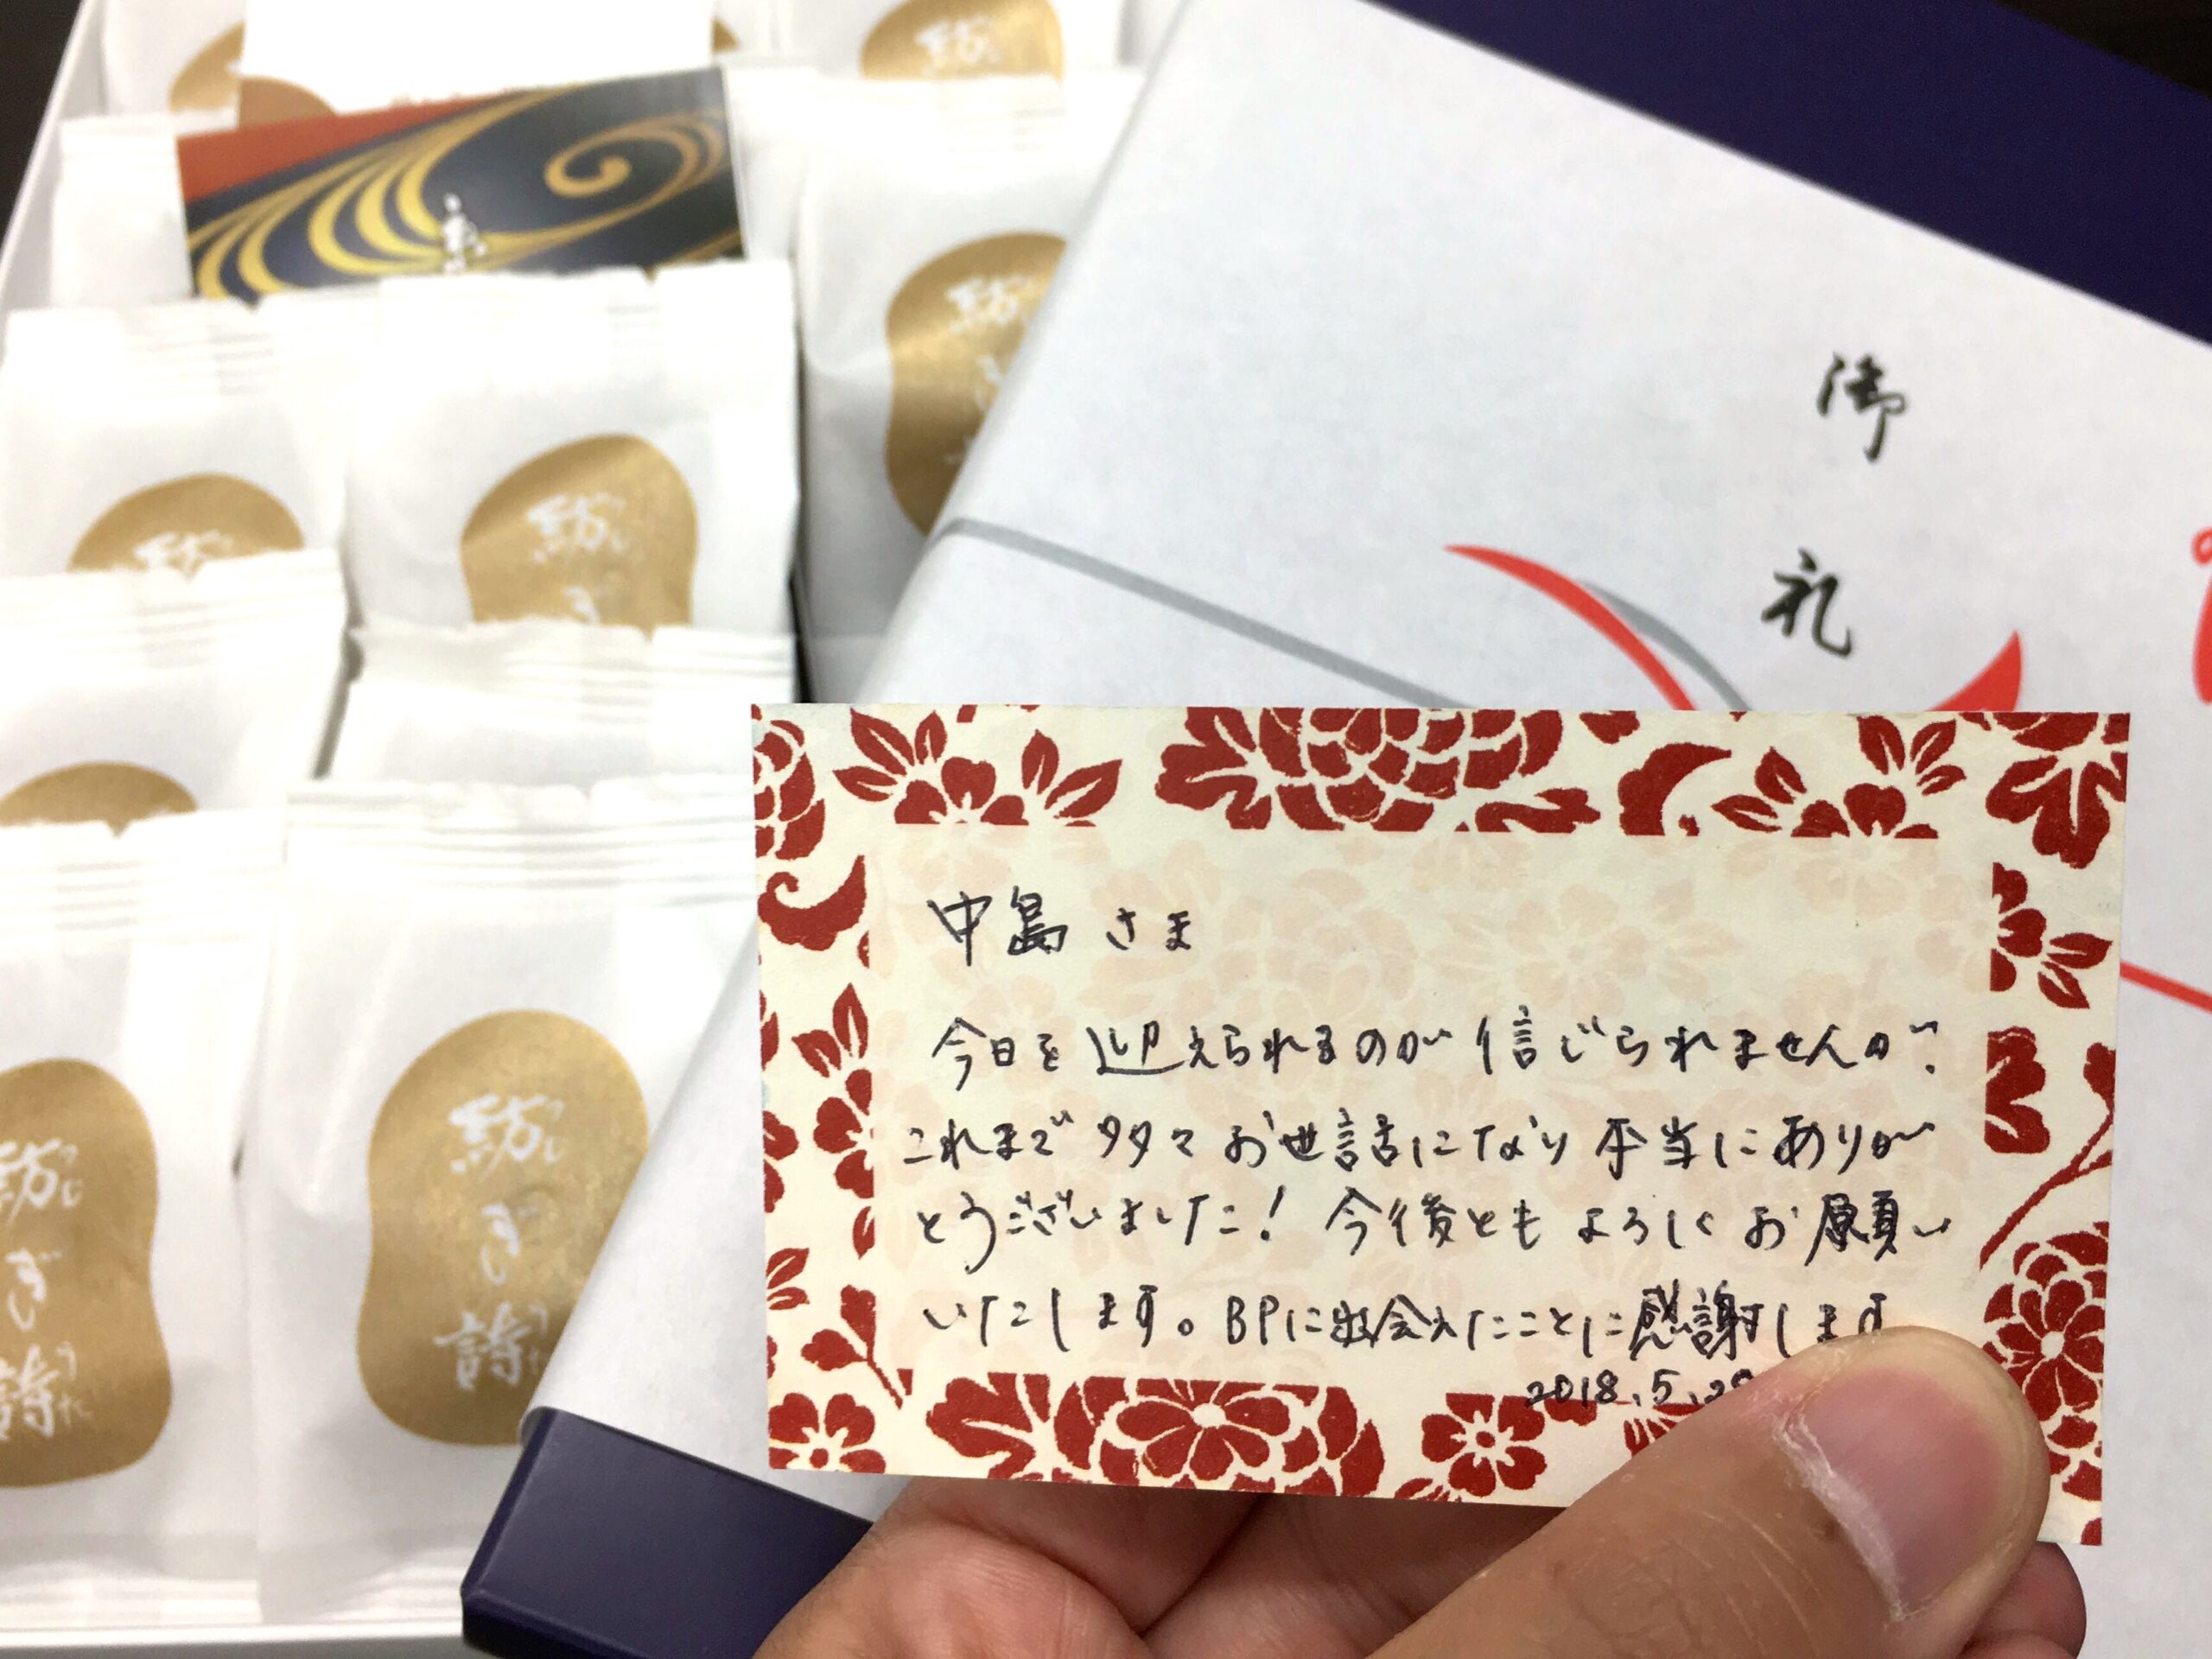 御礼
中島さま
今日を迎えられるのが信じられませんが、
これまで多々お世話になり本当にありが
とうございました！今後ともよろしくお願い
いたします。BPに出会えたことに感謝します
2018.5.2
紡
紡
紡
紡
紡ぎ
紡ぎ詩
紡ぎ詩